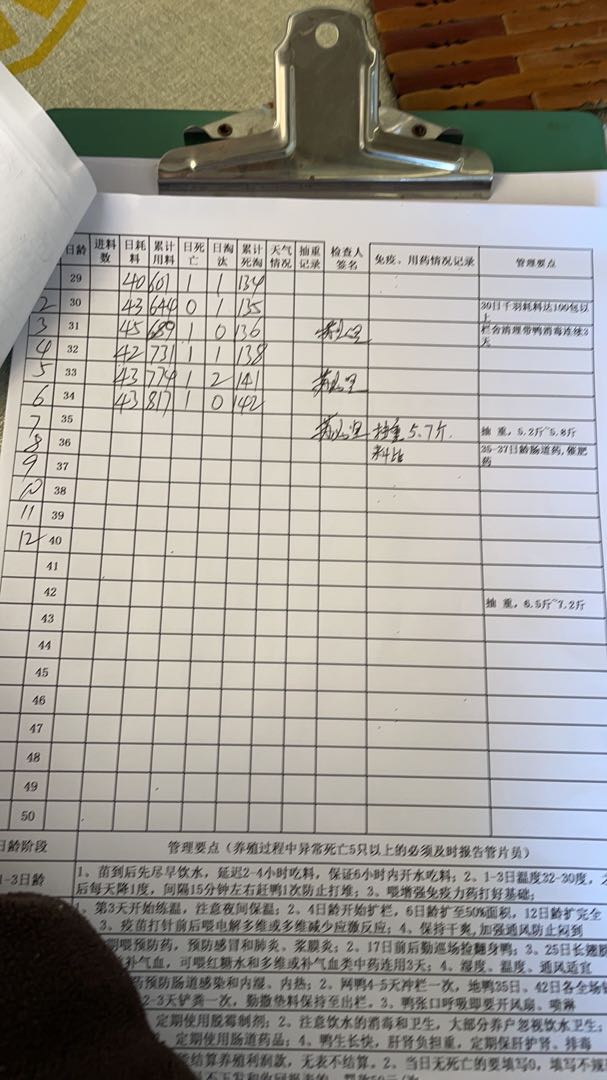 日龄 进料数 日耗料 累计用料 日死亡 日淘汰 累计死淘 天气情况 抽重记录 检查人签名 免疫、用药情况记录 管理要点
29 40 601 1 1 134
2 30 43 644 0 1 135 30日千羽耗料达100包以上
3 31 45 689 1 0 136 栏舍清理带鸭消毒连续3天
4 32 42 731 1 1 138
5 33 43 774 1 2 141
6 34 43 817 1 0 142
7 35 抽重5.7斤. 抽 重,5.2斤~5.8斤
8 36 料比 35-37日龄肠道药,催肥药
9 37
10 38
11 39
12 40
41
42 抽 重,6.5斤~7.2斤
43
44
45
46
47
48
49
50
日龄阶段 管理要点(养殖过程中异常死亡5只以上的必须及时报告管片员)
1-3日龄 1、苗到后先尽早饮水,延迟2-4小时吃料,保证6小时内开水吃料;2、1-3日温度32-30度,之
后每天降1度,间隔15分钟左右赶鸭1次防止打堆;3、喂增强免疫力药打好基础;
、第3天开始练温,注意夜间保温;2、4日龄开始扩栏,6日龄扩至50%面积,12日龄扩完全
、3、疫苗打针前后喂电解多维或多维减少应激反应;4、保持干爽,加强通风防止闷到
期喂预防药,预防感冒和肺炎、浆膜炎;2、17日前后勤巡场捡翻身鸭;3、25日长翅膀
补气血,可喂红糖水和多维或补气血类中药连用3天;4、湿度、温度、通风适宜
药预防肠道感染和内湿、内热;2、网鸭4-5天冲栏一次,地鸭35日、42日各全场
2-3天铲粪一次,勤撒垫料保持至出栏。3、鸭张口呼吸即要开风扇、喷淋
定期使用脱霉制剂;2、注意饮水的消毒和卫生,大部分养户忽视饮水卫生;
定期使用肠道药品;4、鸭生长快,肝肾负担重,定期保肝护肾、排毒
结算养殖利润款,无表不结算。2、当日无死亡的要填写0,填写不规